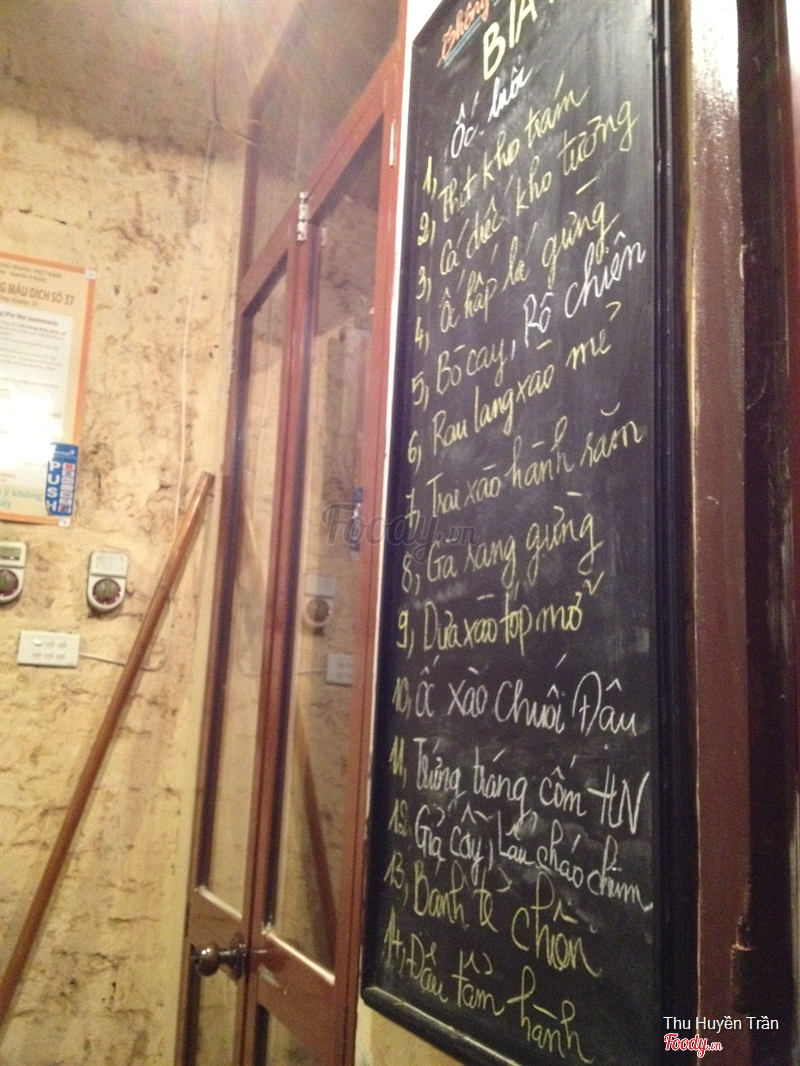 BIA
Ốc luộc
1, Thịt kho trám
2, Cá diếc kho tương
3, Ốc hấp lá gừng
4, Bò cay, Rô chiên
5, Rau lang xào mẻ
6, Trai xào hành răm
7, Gà rang gừng
8, Dưa xào tóp mỡ
9, Ốc xào chuối Đậu
10, Trứng tráng cốm HN
11, Giả cầy, Lẩu cháo chim
12, Bánh tẻ chiên
13, Đậu tẩm hành
14,
G MẬU DỊCH SỐ 37
PUSH
Foody.vn
Thu Huyền Trần
Foody.vn